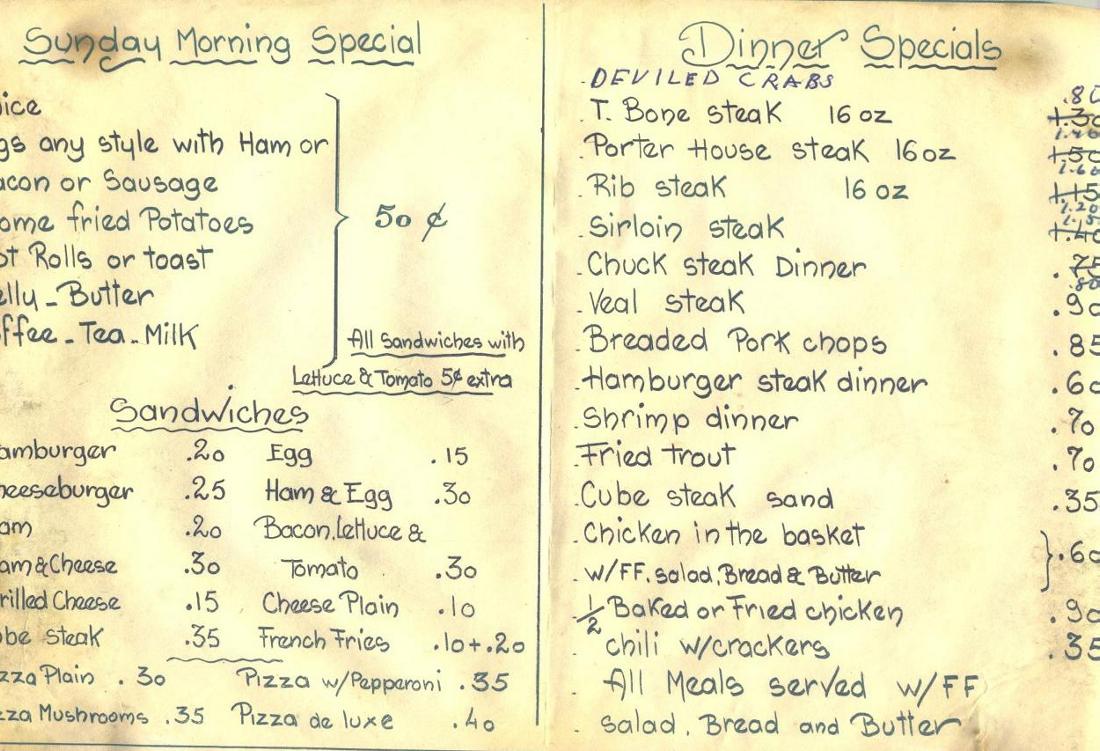 Sunday Morning Special
ice
gs any style with Ham or
acon or Sausage
ome fried Potatoes
50 ¢
ot Rolls or toast
elly - Butter
ffee - Tea - Milk
All Sandwiches with
Lettuce & Tomato 5¢ extra
Sandwiches
amburger .20 Egg .15
heeseburger .25 Ham & Egg .30
am .20 Bacon, Lettuce &
am & Cheese .30 Tomato .30
rilled Cheese .15 Cheese Plain .10
be steak .35 French Fries .10 + .20
zza Plain .30 Pizza w/Pepperoni .35
zza Mushrooms .35 Pizza de luxe .40
Dinner Specials
DEVILED CRABS .80
T. Bone steak 16 oz 1.30
Porter House steak 16 oz 1.50
Rib steak 16 oz 1.15
Sirloin steak 1.40
Chuck steak Dinner .75
Veal steak .90
Breaded Pork chops .85
Hamburger steak dinner .60
Shrimp dinner .70
Fried trout .70
Cube steak sand .35
Chicken in the basket
.60
w/FF, salad, Bread & Butter
1/2 Baked or Fried chicken .90
chili w/crackers .35
All Meals served w/FF
salad, Bread and Butter